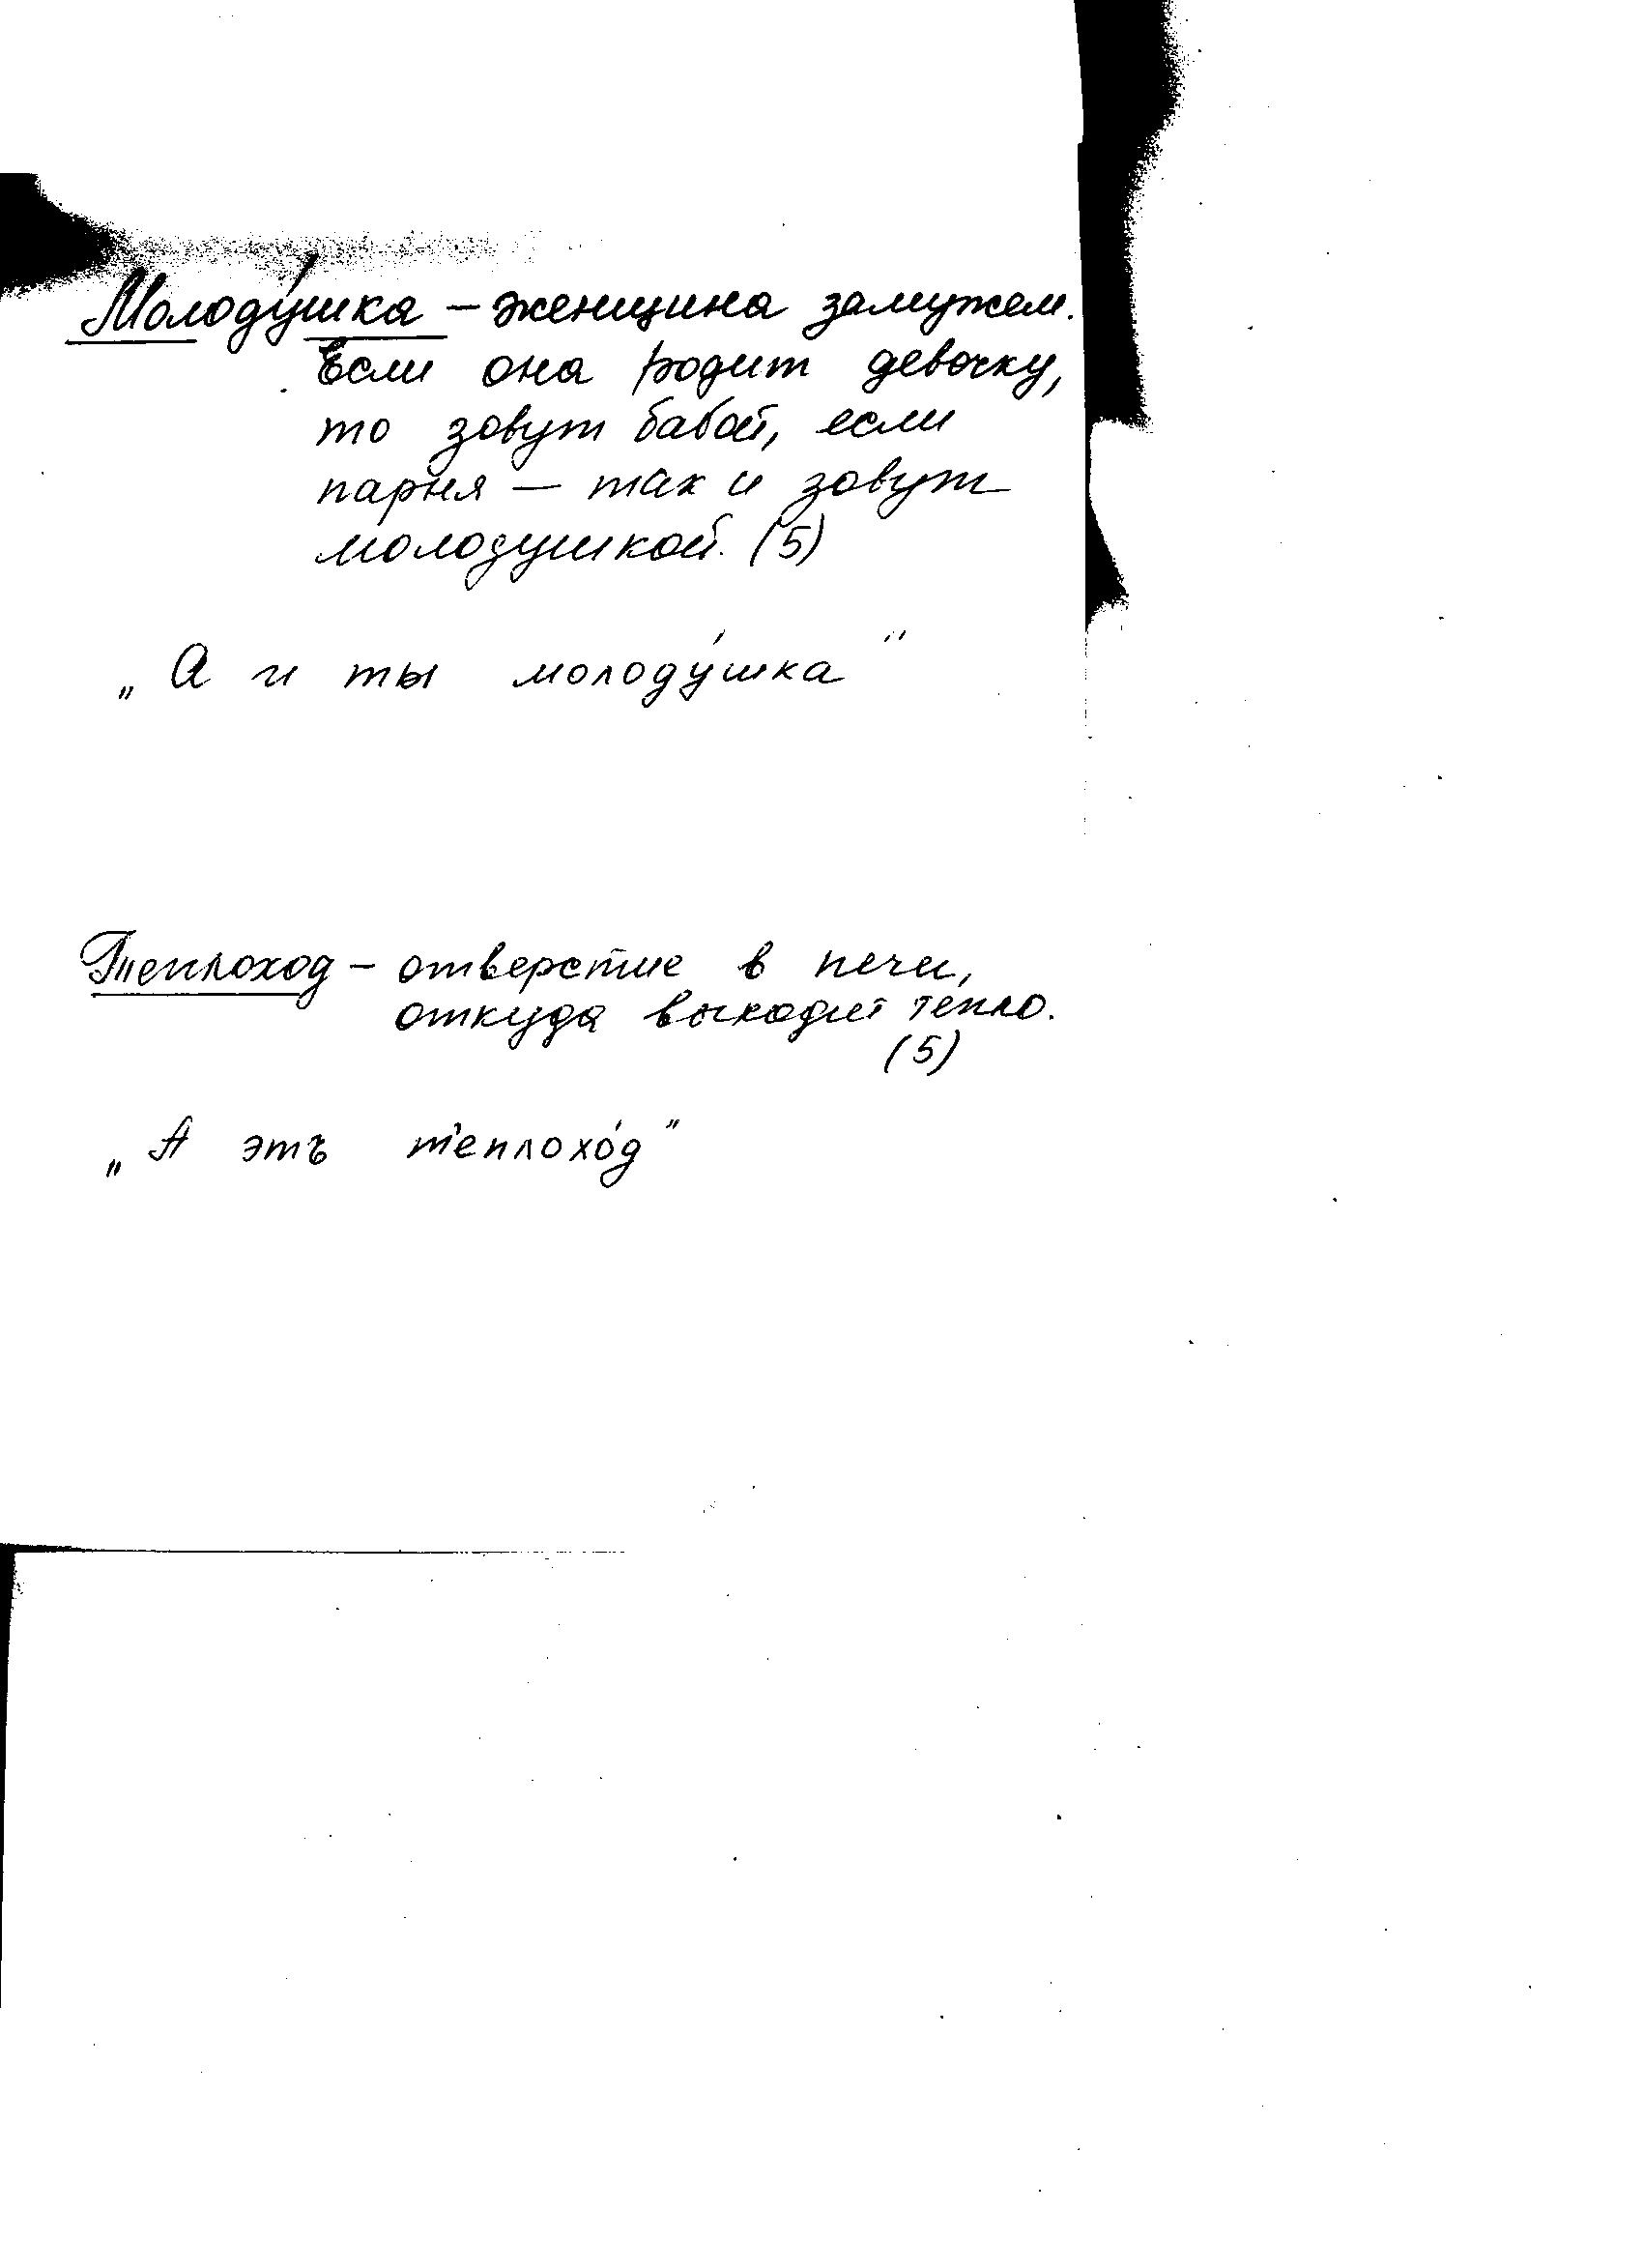 Молоду́шка – женщина замужем.
Если она родит девочку,
то зовут бабой, если
парня – так и зовут
молодушкой. (5)
„А и ты молоду́шка"
Теплоход – отверстие в печи,
откуда выходит тепло.
(5)
„А этъ т'еплохо́д"